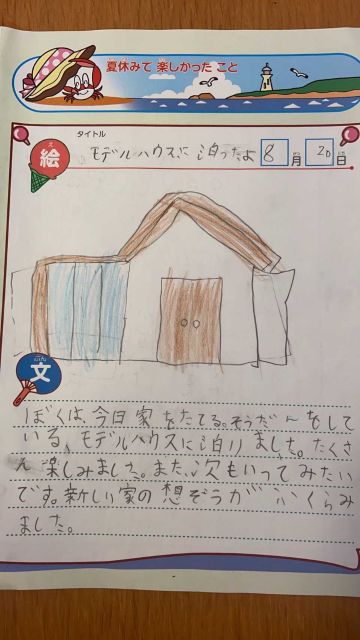 夏休みで 楽しかった こと
タイトル
え
絵
モデルハウスに 泊ったよ 8月 20日
ぶん
文
ぼくは、今日 家 をたてる。そうだんをして
いる、モデルハウスに泊り ました。たくさ
ん 楽しみました。また、次もいって みたい
です。新しい家の 想ぞうが ふくらみ
ました。